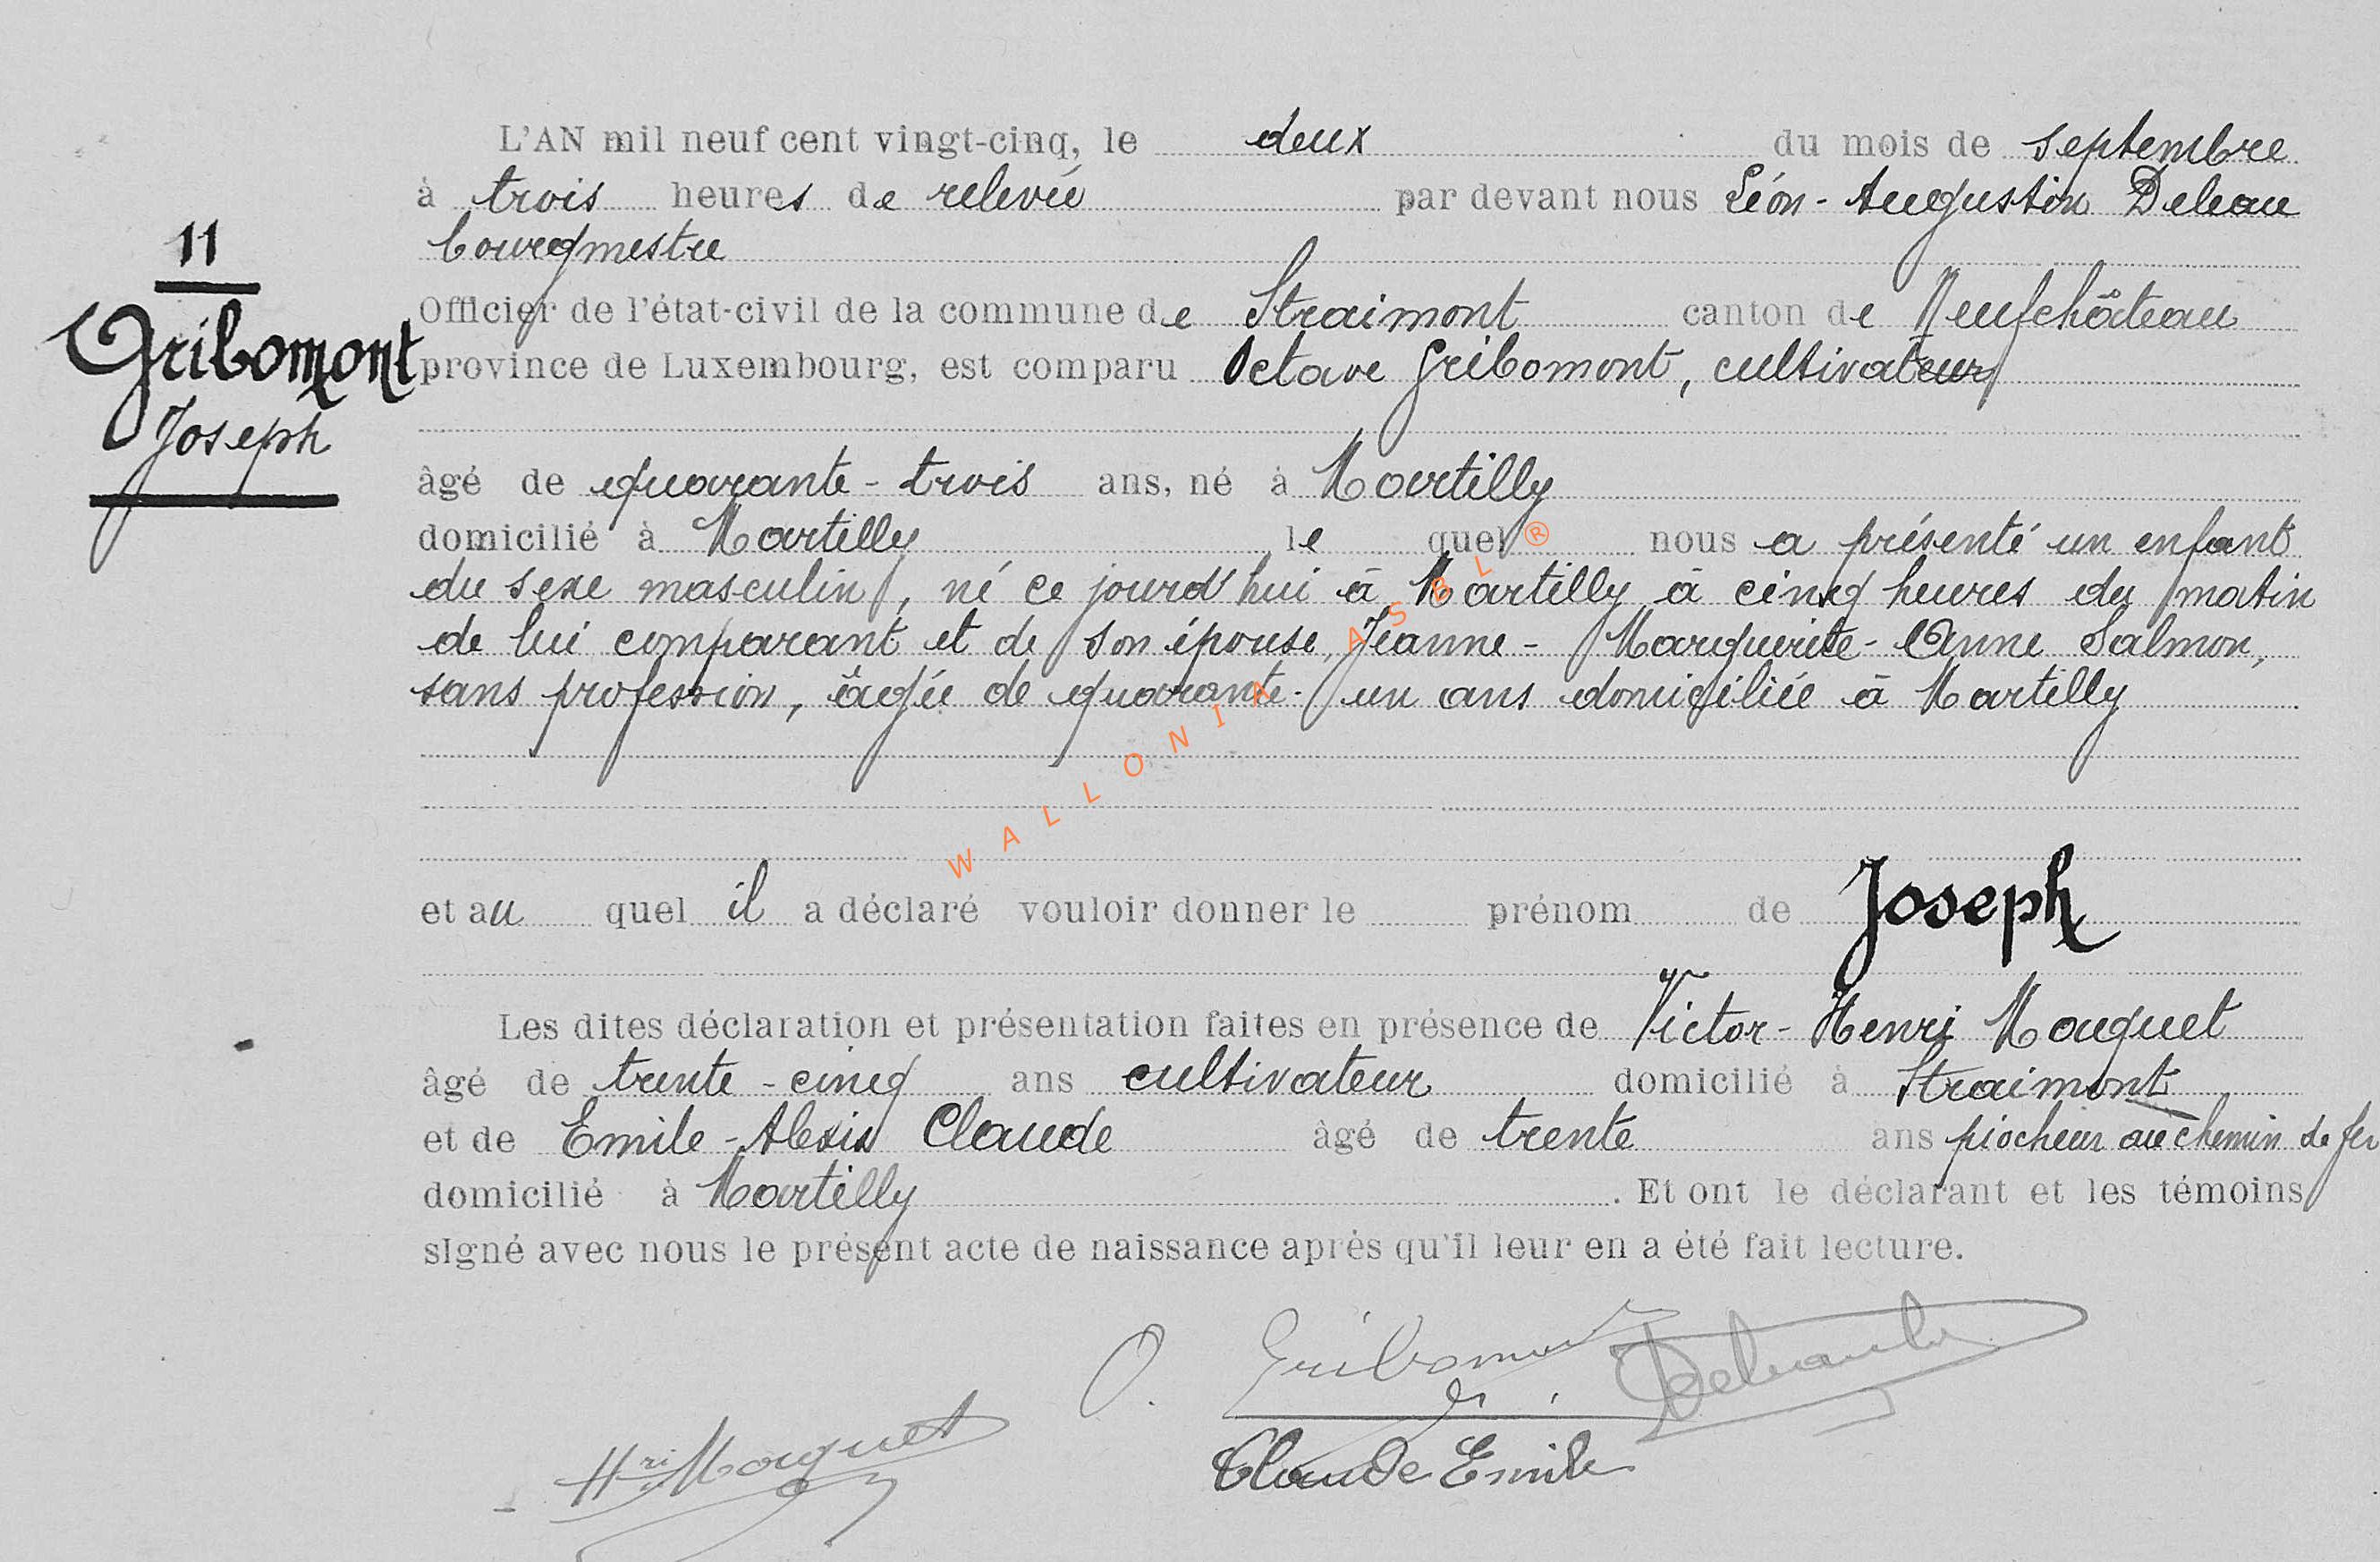 11
Gribomont
Joseph
L'AN mil neuf cent vingt-cinq, le deux du mois de septembre
à trois heures de relevée par devant nous Léon-Augustin Deleau
bourgmestre
Officier de l'état-civil de la commune de Straimont canton de Neufchâteau
province de Luxembourg, est comparu Octave Gribomont, cultivateur
âgé de quarante-trois ans, né à Martilly
domicilié à Martilly le quel nous a présenté un enfant
du sexe masculin, né ce jourd'hui à Martilly à cinq heures du matin
de lui comparant et de son épouse, Jeanne-Marguerite-Anne Salmon,
sans profession, âgée de quarante-un ans domiciliée à Martilly
WALLONIA ASBL ®
et au quel il a déclaré vouloir donner le prénom de Joseph
Les dites déclaration et présentation faites en présence de Victor-Henri Mouquet
âgé de trente-cinq ans cultivateur domicilié à Straimont
et de Emile-Alexis Claude âgé de trente ans piocheur au chemin de fer
domicilié à Martilly. Et ont le déclarant et les témoins
signé avec nous le présent acte de naissance après qu'il leur en a été fait lecture.
O. Gribomont
Hri Mouquet
Claude Emile